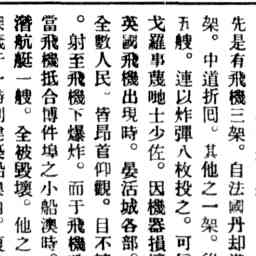 先是有飛機三架。自法國丹却
架。中道折囘。其他之一架。
五艘。連以炸彈八枚投之。可
戈羅事蔑吔士少佐。因機器損
英國飛機出現時。晏活城各部。
全數人民。皆昂首仰觀。目不
。射至飛機下爆炸。而于飛機
當飛機抵合博件埠之小船澳時。
潛航艇一艘。全被毀壞。他之